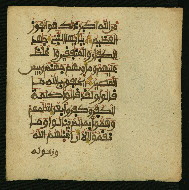 من الله أكبر ذلك هو الفوز
العظيم يأيها النبي جهد
الكفار والمنفقين واغلظ
عليهم ومأويهم جهنم وبيس
المصير يحلفون بالله ما
قالوا ولقد قالوا كلمة
الكفر وكفروا بعد إسلمهم
وهموا بما لم ينالوا وما
نقموا إلا أن أغنيهم الله
ورسوله